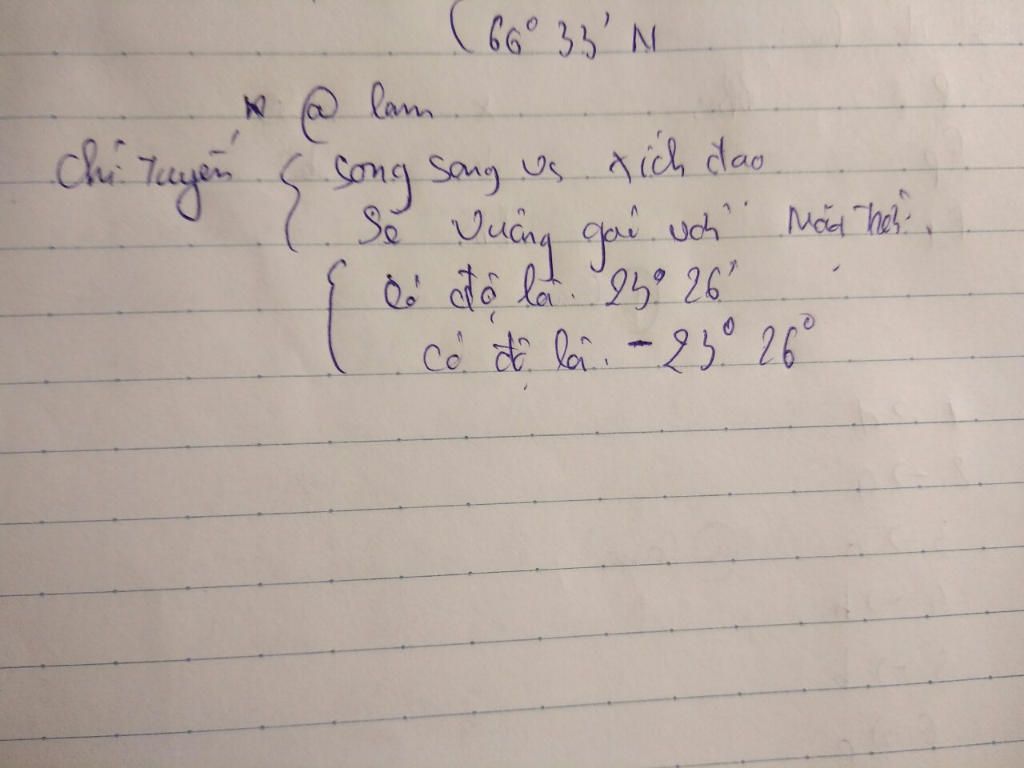 (66° 33' N
@ lam
Chí tuyến { song song vs xích đao
Sẽ vuông gối với Mời
{ Có độ là. 23° 26'
Có độ là. -23° 26°